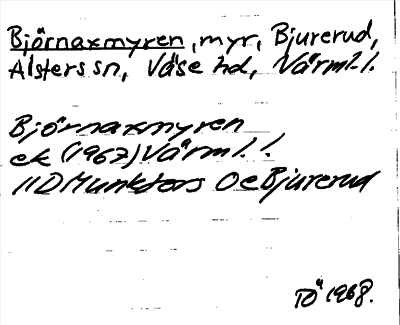 Björnaxmyren, myr, Bjurerud,
Alsters sn, Väse hd, Värml.
Björnaxmyren
ek (1967) Värml.
11D Munkfors 0e Bjurerud
TÖ 1968.